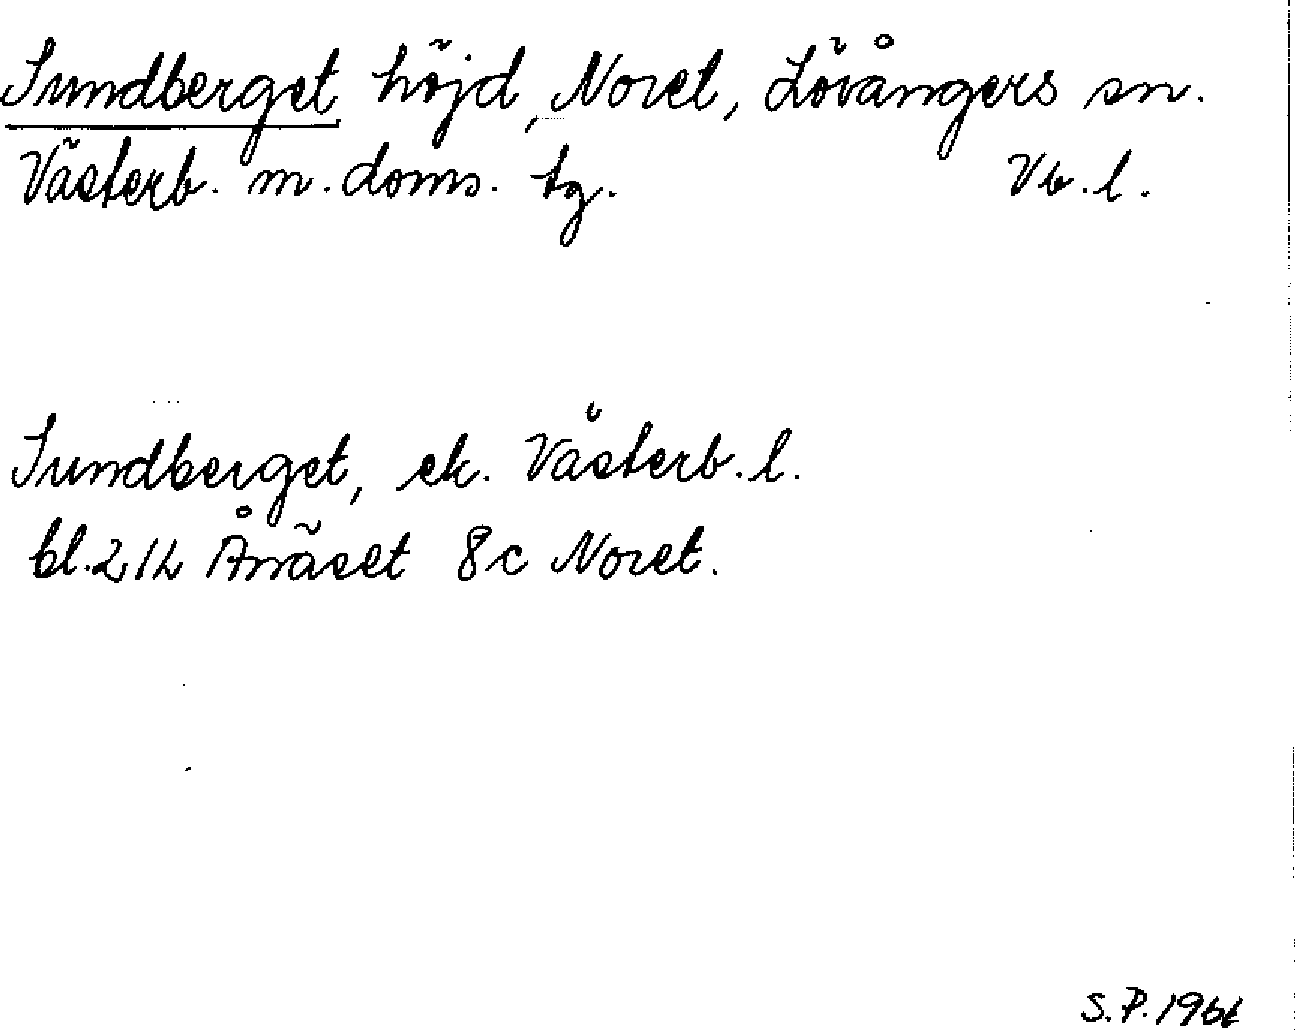 Sundberget höjd, Noret, Lövångers sn.
Västerb. m. doms. tg. Vb. l.
Sundberget, ek. Västerb. l.
bl. 21 h Ånäset 8c Noret.
S.P. 1966